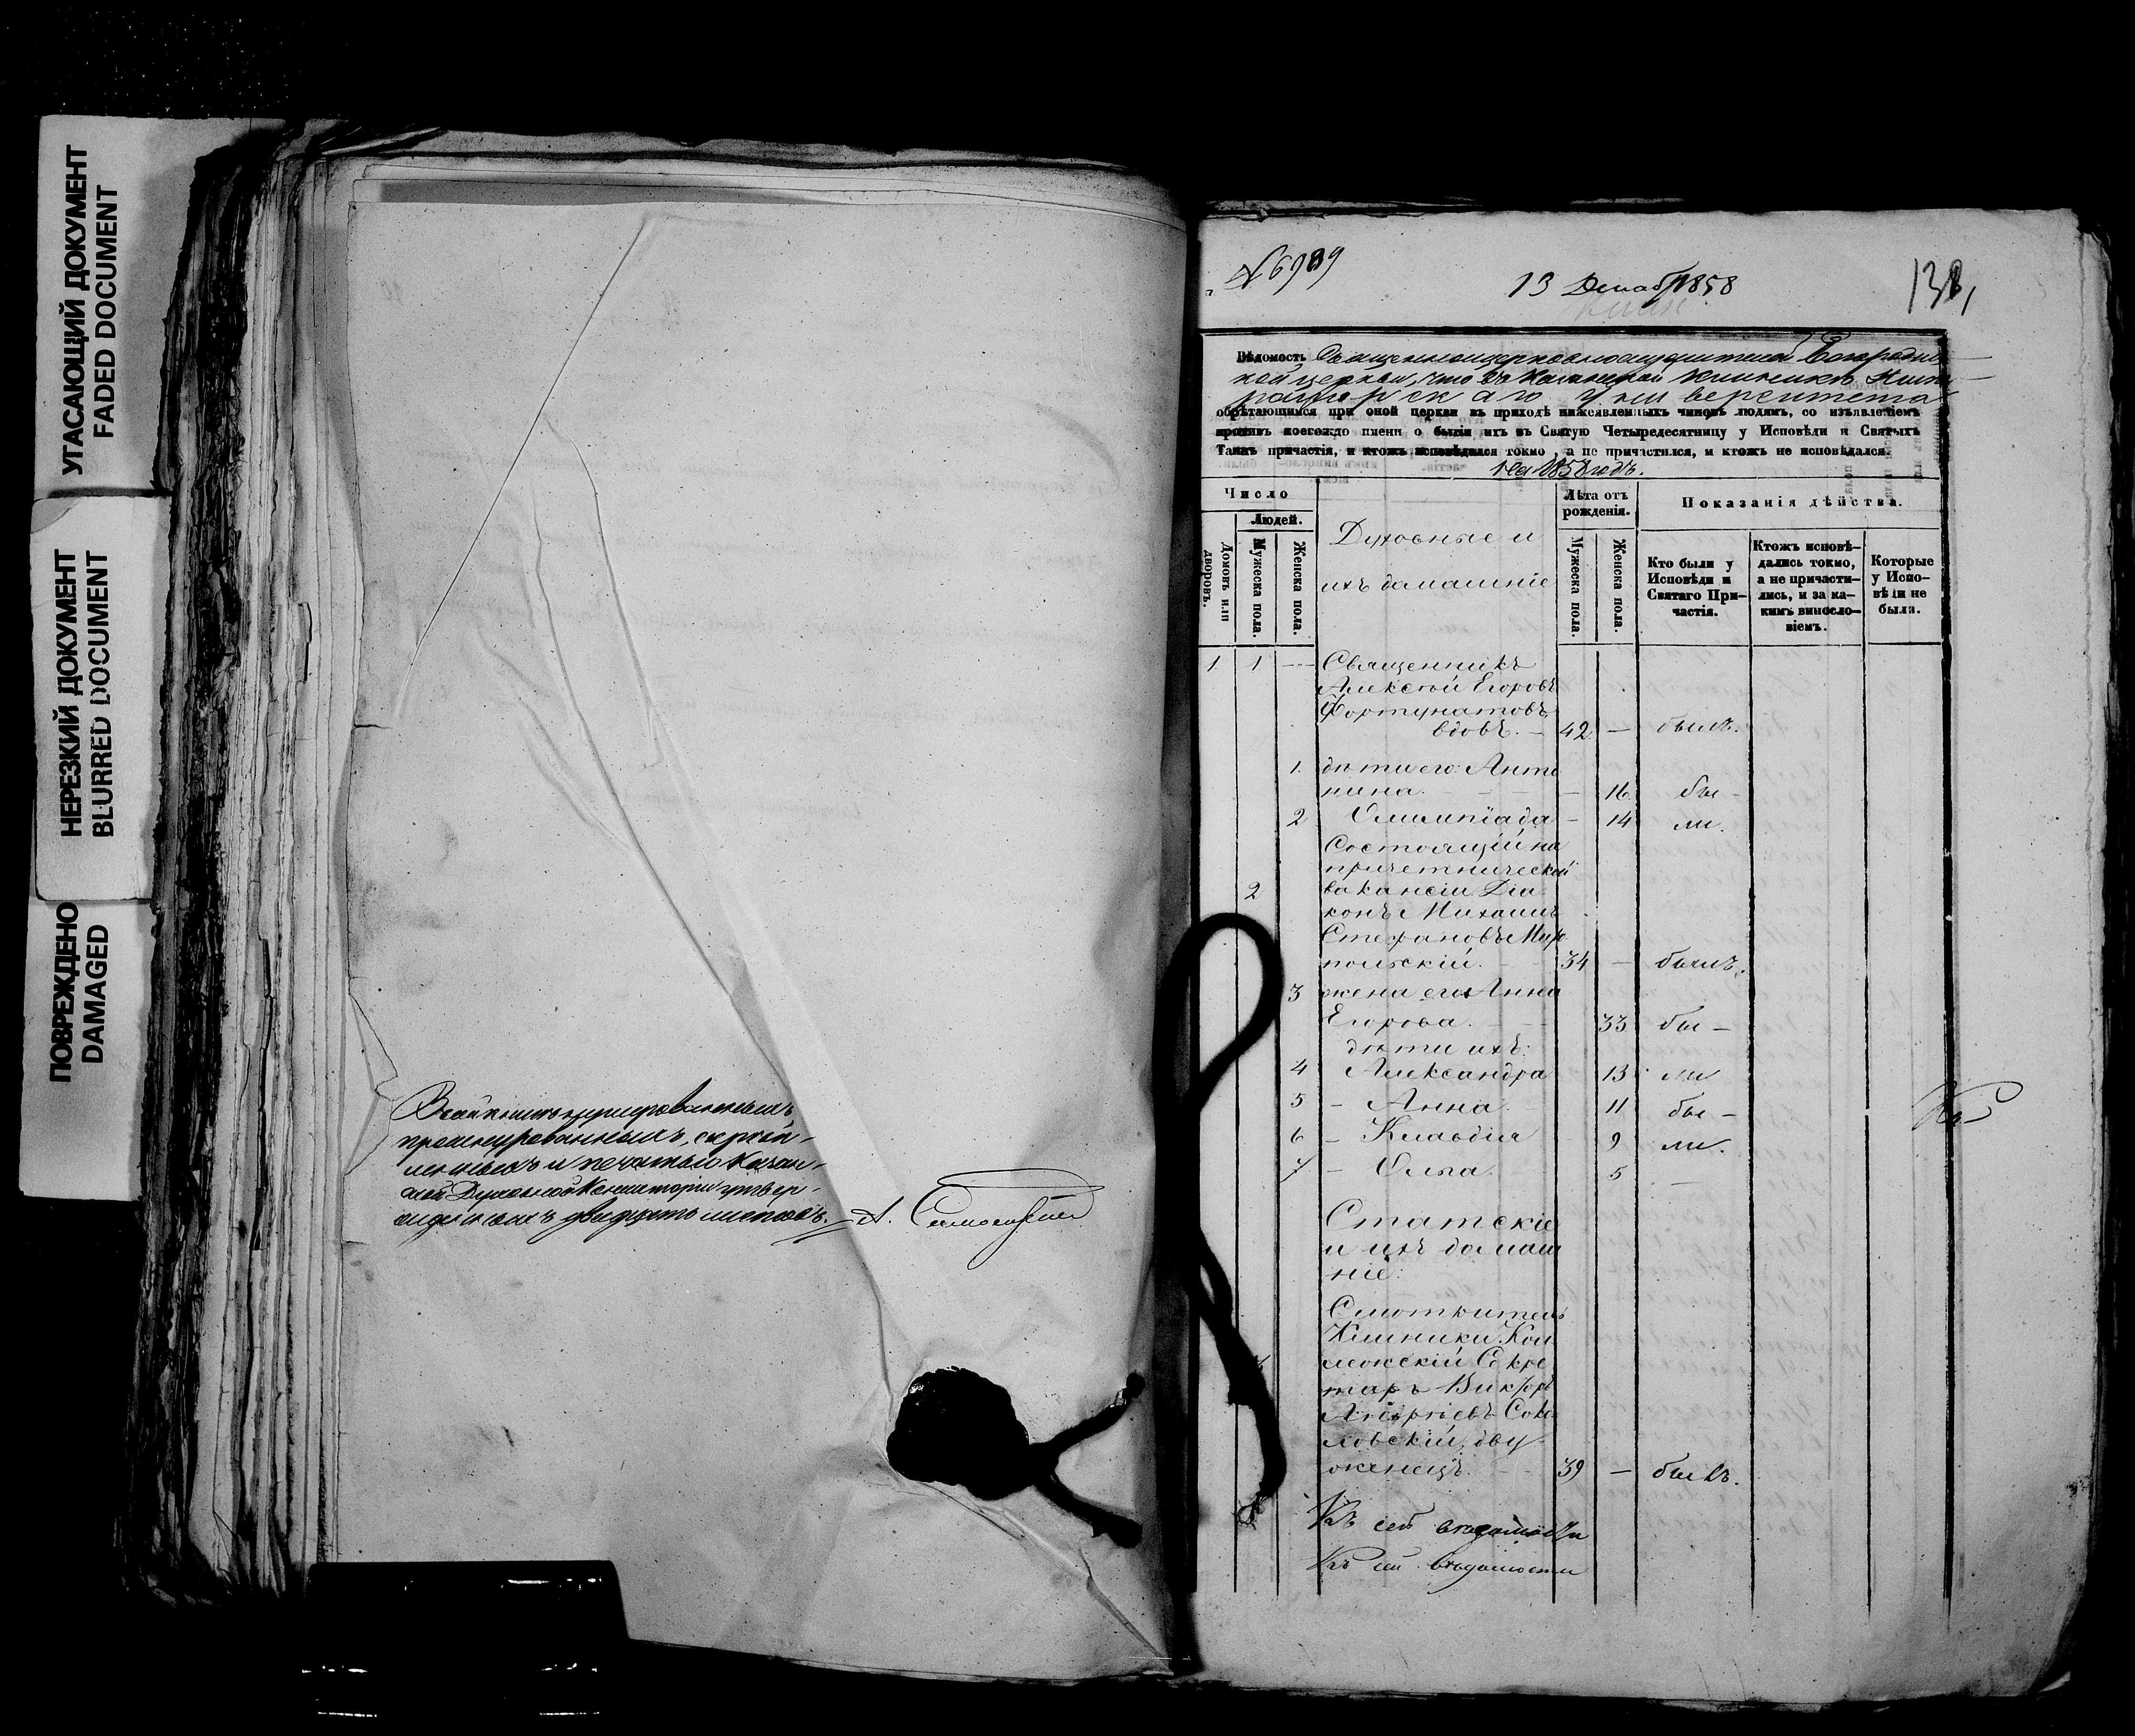 УГАСАЮЩИЙ ДОКУМЕНТ
FADED DOCUMENT
НЕРЕЗКИЙ ДОКУМЕНТ
BLURRED DOCUMENT
ПОВРЕЖДЕНО
DAMAGED
В сей книге нумерованныхъ
прошнурованныхъ, скреп-
ленныхъ и печатью Казан-
ской Духовной Консисторiи утвер-
жденныхъ двадцать листовъ.
А.
№ 6989
13 Декабр 1858
Вѣдомость Священноцерковнослужителей
кой церкви, что въ Казанской клиникѣ Импе
раторскаго Университета
обрѣтающимся при оной церкви въ приходѣ нижеявленныхъ чиновъ людямъ, со изъявленіемъ
противъ коегождо имени о бытіи ихъ въ Святую Четыредесятницу у Исповѣди и Святыхъ
Таинъ причастія, и ктожъ исповѣдался токмо, а не причастился, и ктожъ не исповѣдался.
на 1858 годъ.
Число
Людей.
Домовъ или дворовъ.
Мужеска пола.
Женска пола.
Духовные и
ихъ домашніе
Лѣта отъ
рожденія.
Мужеска пола.
Женска пола.
Показанія дѣйства.
Кто были у
Исповѣди и
Святаго При-
частія.
Ктожъ исповѣ-
дались токмо,
а не причасти-
лись, и за ка-
кимъ винсло-
віемъ.
Которые
у Испо-
вѣди не
были.
1 1 Священникъ
Алексѣй Егоровъ
Фортунатовъ
вдовъ. — 42 — былъ.
1. дѣти его: Анто
нина. — 16 бы -
2 Олимпіада - 14 ли.
Состоящій на
причетнической
2 вакансіи Діа
конъ Михаилъ
Стефановъ Мир
польскій. 34 — былъ.
3 жена его Анна
Егорова. 33 бы -
дѣти ихъ:
4 Александра 13 ли
5 - Анна 11 бы -
6 - Клавдія 9 ли.
7 - Ольга. 5 —
Статскіе
и ихъ домаш
ніе:
Смотритель
Клиники Кол
лежскій Секре
тарь Викторъ
Соко
ловскій, дву
женецъ. 39 — былъ.
Къ сей вѣдомости
Къ сей вѣдомости